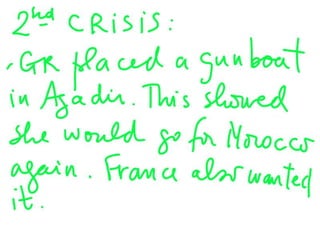 2nd CRISIS:
- GR placed a gunboat
in Agadir. This showed
she would go for Morocco
again. France also wanted
it.